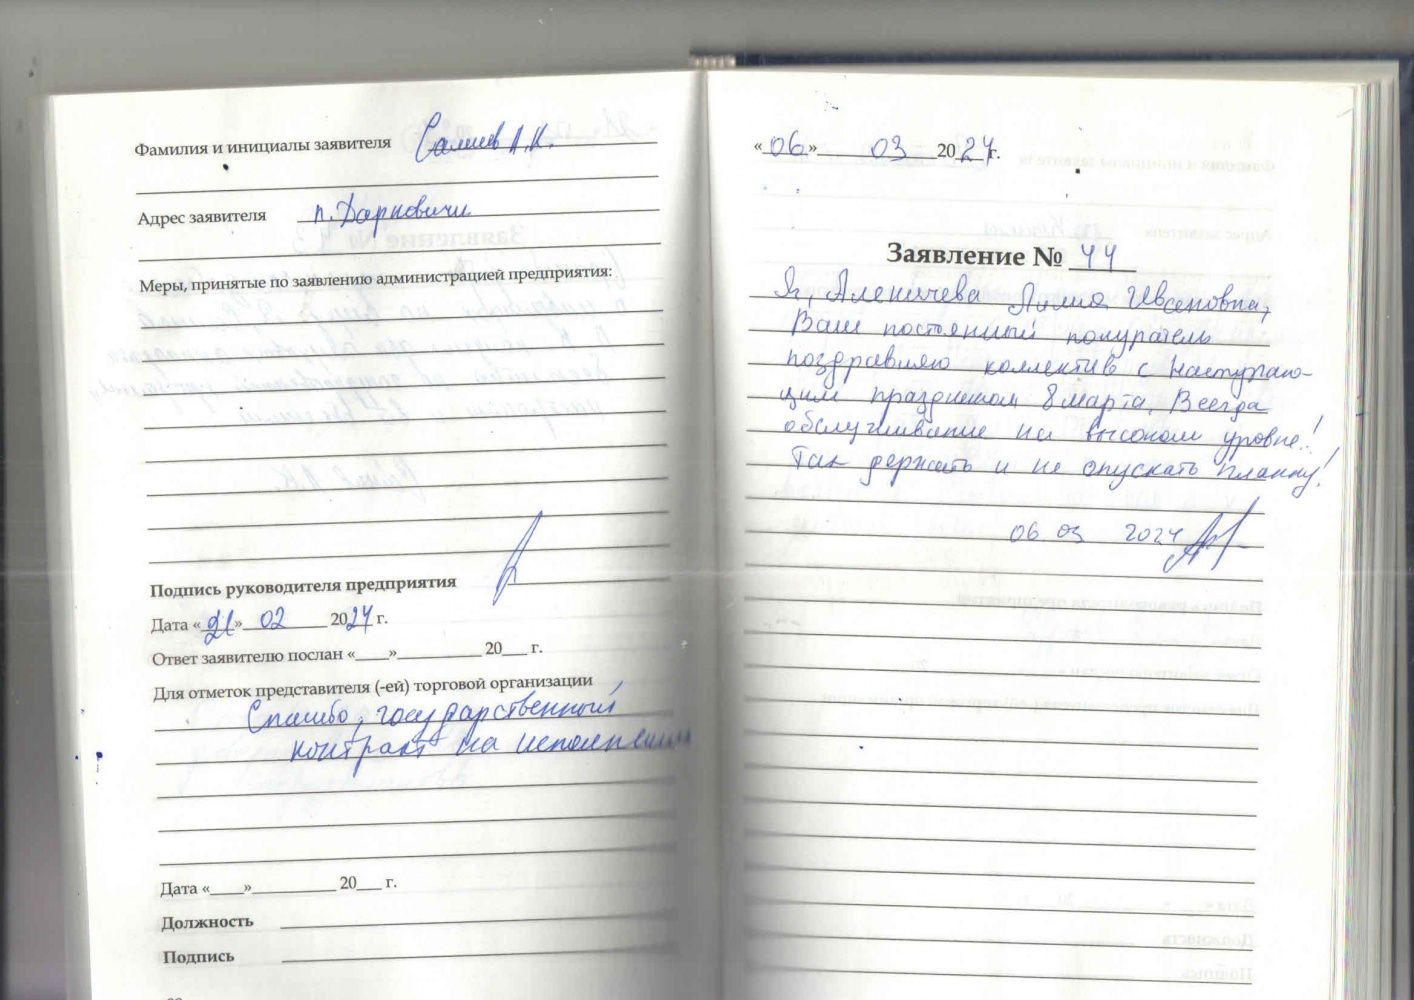 Фамилия и инициалы заявителя Салиев А.К.
Адрес заявителя п. Дарковичи
Меры, принятые по заявлению администрацией предприятия:
Подпись руководителя предприятия
Дата «21» 02 2024 г.
Ответ заявителю послан «___»__________ 20___ г.
Для отметок представителя (-ей) торговой организации
Спасибо, государственный
контракт на исполнении
Дата «____»__________ 20___ г.
Должность
Подпись
«06» 03 2024 г.
Заявление № 44
Я, Аленичева Лилия Ивановна,
Ваш постоянный покупатель
поздравляю коллектив с наступаю-
щим праздником 8 марта. Всегда
обслуживание на высоком уровне!
Так держать и не опускать планку!
06 03 2024